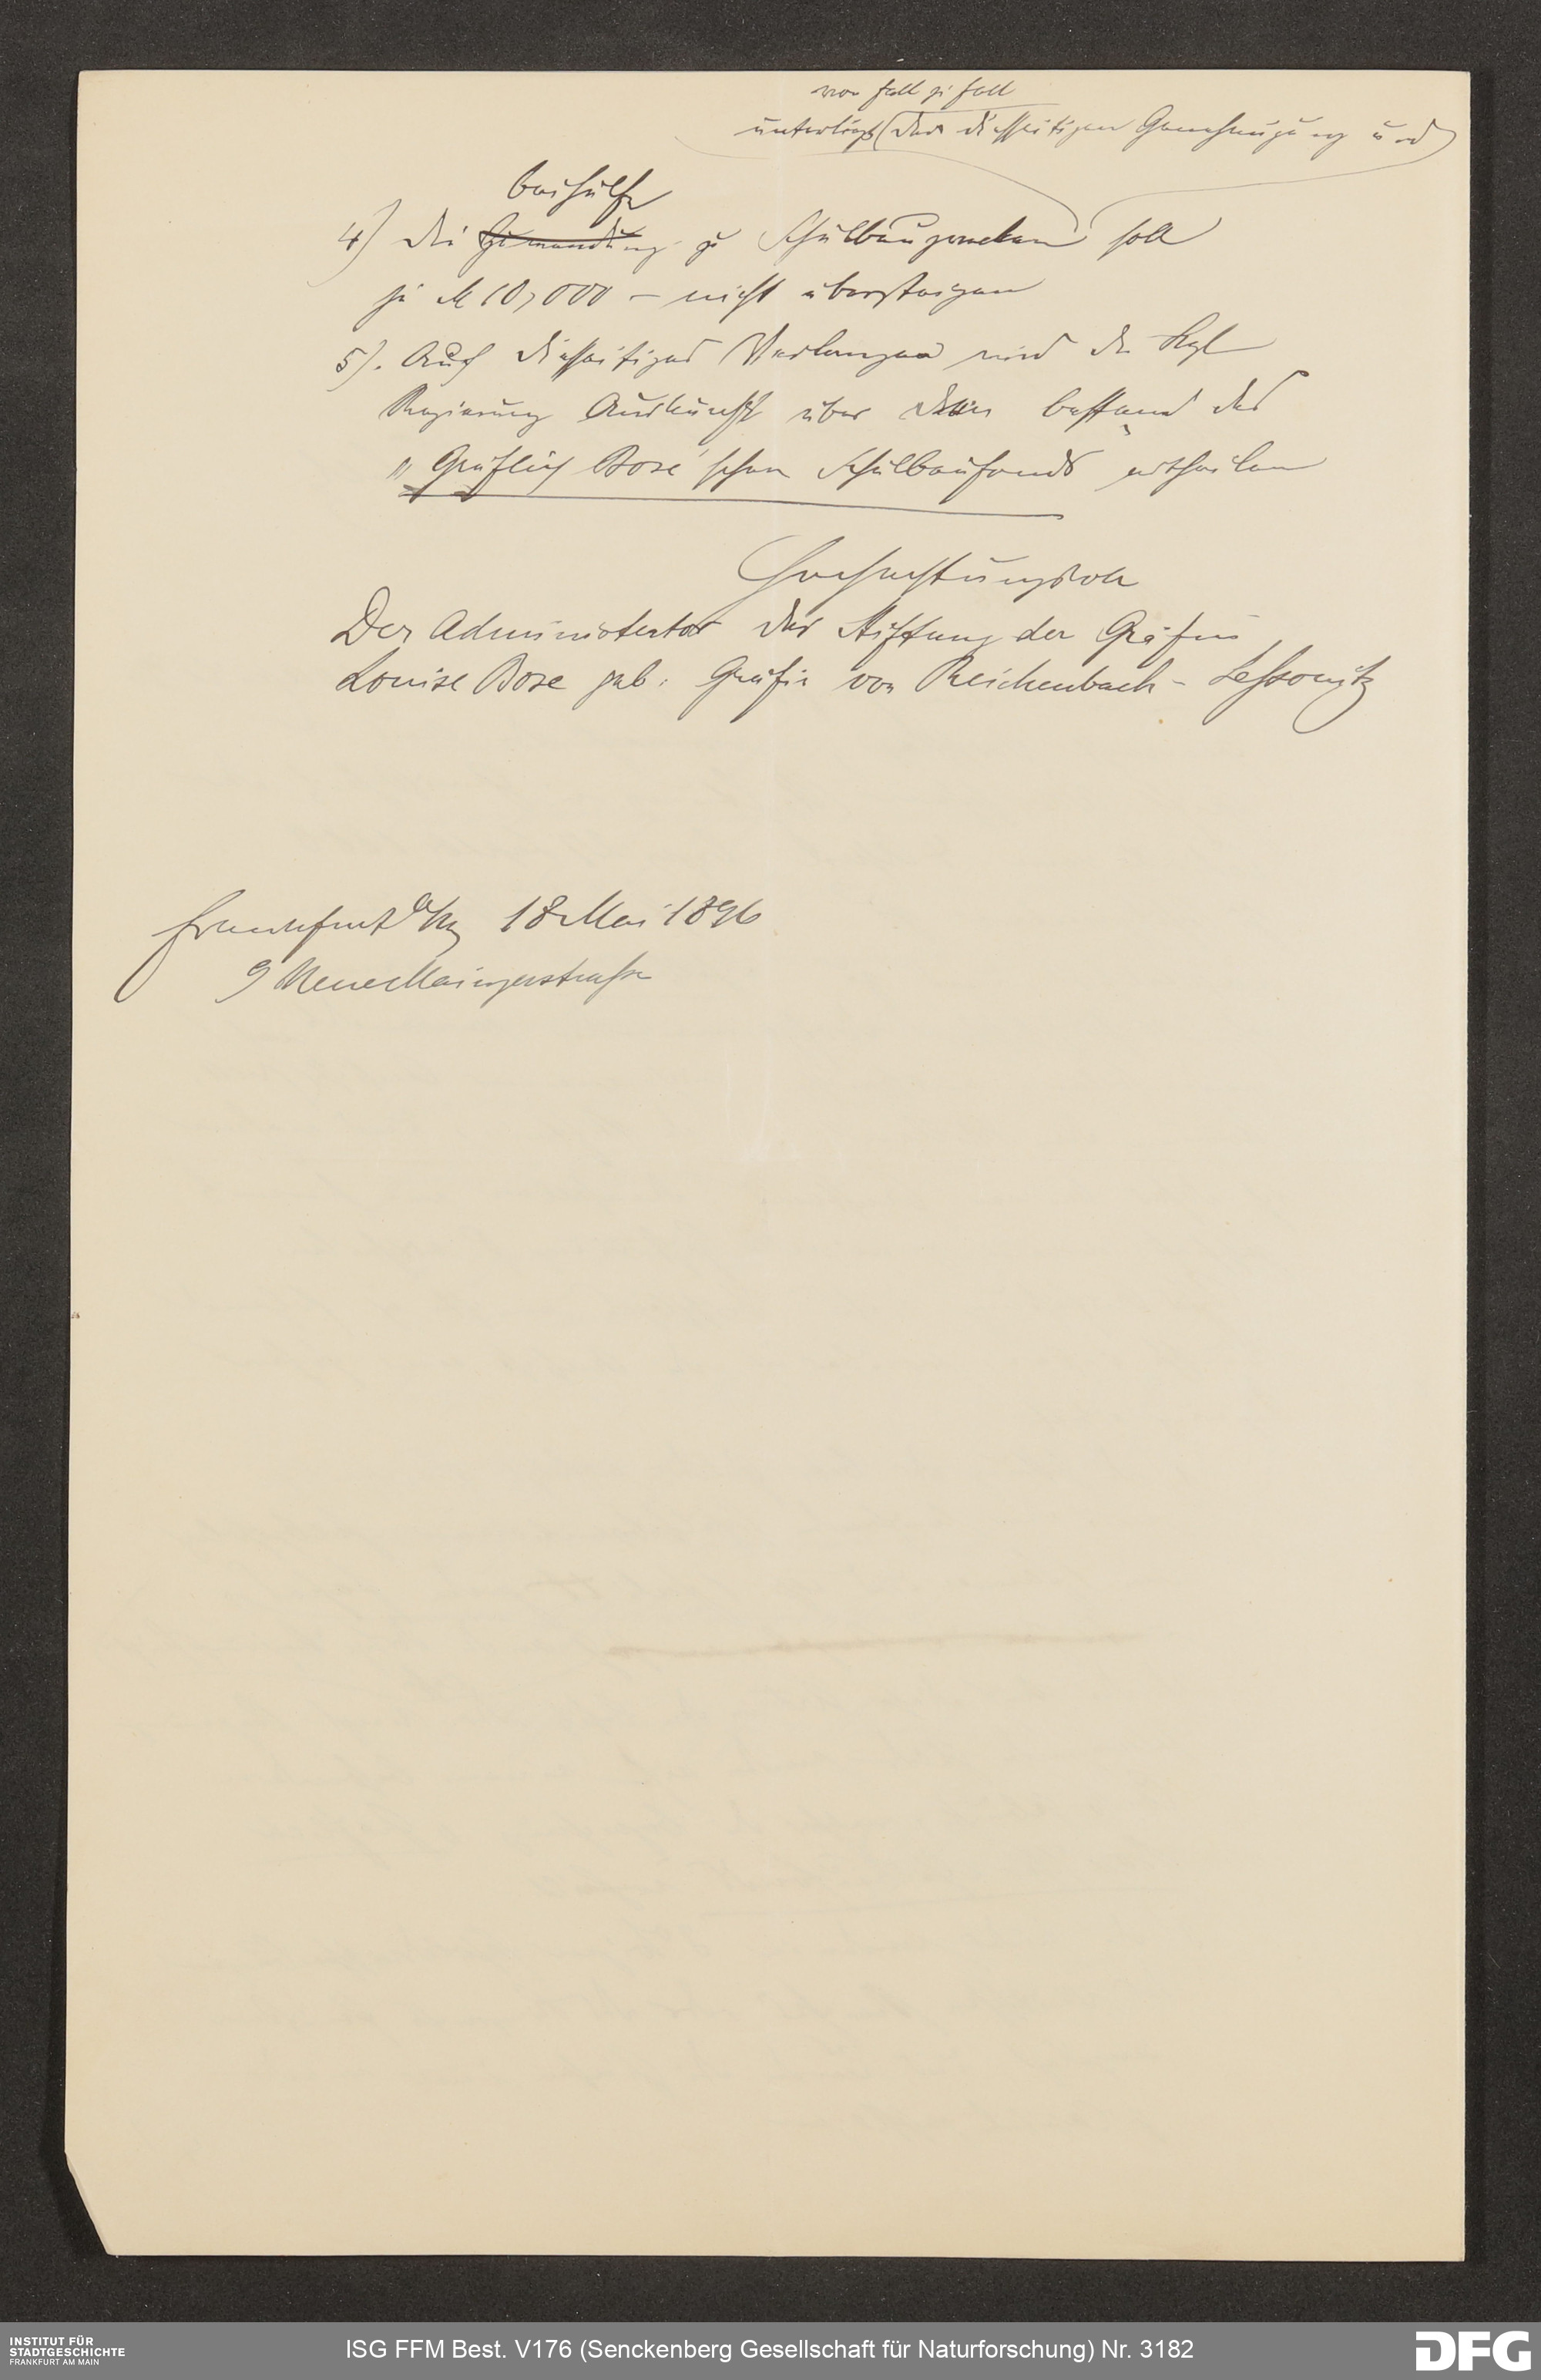 von Fall zu Fall
unterliegt (der diesseitigen Genehmigung und)
Beihülfe
4) die Zuwendung zu Schulbauzwecken soll
je M 10,000 – nicht übersteigen
5). Auf diesseitiges Verlangen wird die Kgl
Regierung Auskunft über den Bestand des
„Gräflich Bose'schen Schulbaufonds ertheilen
Hochachtungsvoll
Der Administrator der Stiftung der Gräfin
Louise Bose geb. Gräfin von Reichenbach-Lessonitz
Frankfurt a/M 18 Mai 1896
9 Neue Mainzerstrasse
INSTITUT FÜR
STADTGESCHICHTE
FRANKFURT AM MAIN
ISG FFM Best. V176 (Senckenberg Gesellschaft für Naturforschung) Nr. 3182
DFG